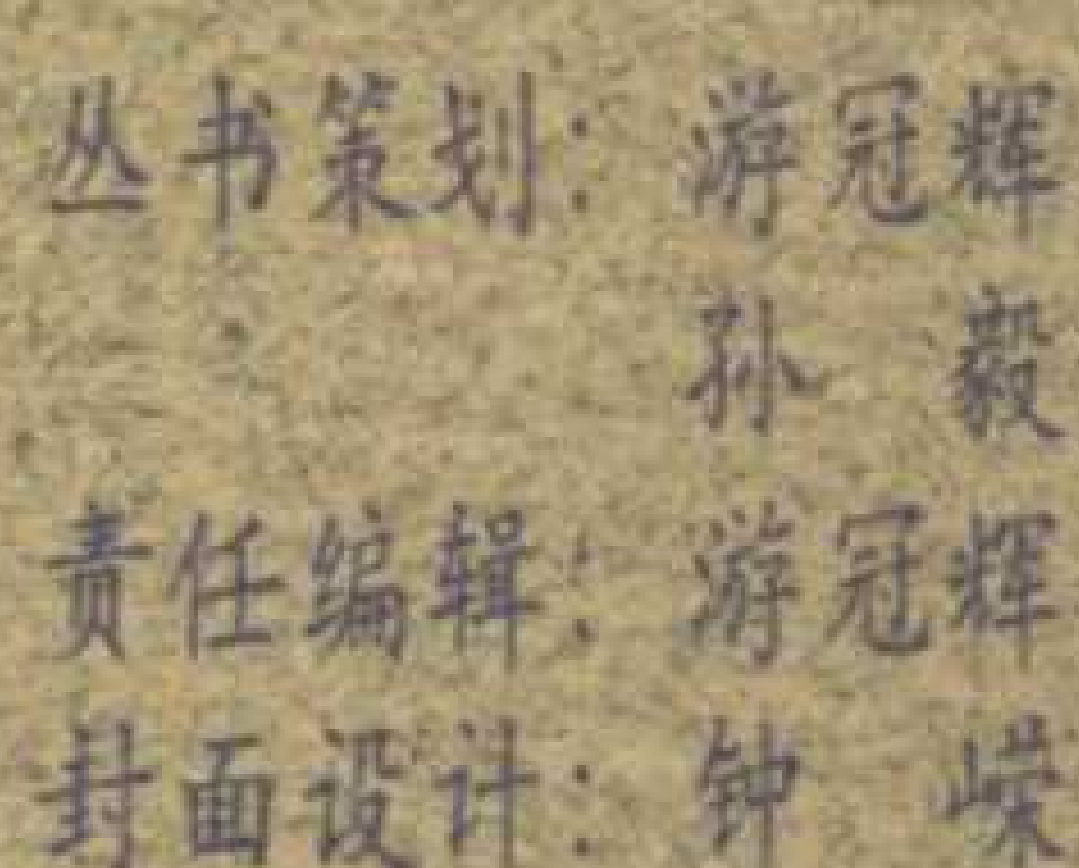 丛书策划：游冠辉
孙毅
责任编辑：游冠辉
封面设计：钟嵘